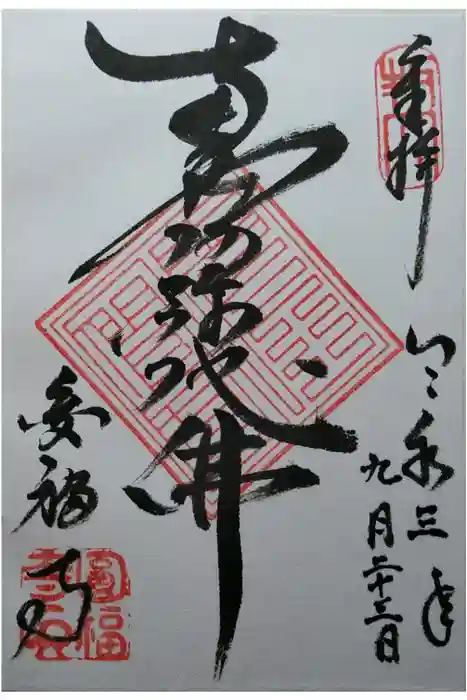 奉拝
令和三年
九月二十三日
南無阿弥陀佛
圓福寺
圓福
寺印